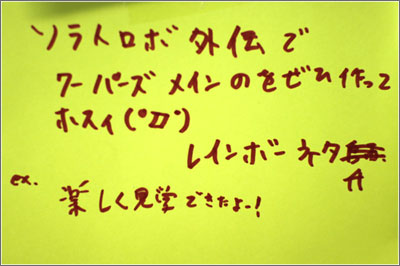 ソラトロボ外伝で
ワーパーズメインのをぜひ作って
ホスィ(°Д°)
レインボーネタ
A
ex.
楽しく見学できたよー!